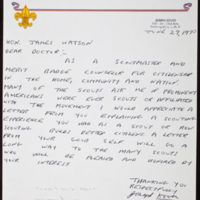 JUNE 27, 1970
HON. JAMES WATSON
DEAR DOCTOR:-
AS A SCOUTMASTER AND
MERIT BADGE COUNSELOR FOR CITIZENSHIP
IN THE HOME, COMMUNITY AND NATION,
MANY OF THE SCOUTS ASK ME IF PROMINENT
AMERICANS WERE EVER SCOUTS OR AFFILIATED
WITH THE MOVEMENT. I WOULD APPRECIATE A
LETTER FROM YOU EXPLAINING A SCOUTING
EXPERIENCE YOU HAD AS A SCOUT OR HOW
SCOUTING BUILDS BETTER CITIZENS. A LETTER
FROM YOUR GOOD SELF WILL GO A
LONG WAY TO THE MANY SCOUTS
WHO WILL BE PLEASED AND HONORED BY
YOUR INTEREST.
THANKING YOU
RESPECTFULLY
Joseph